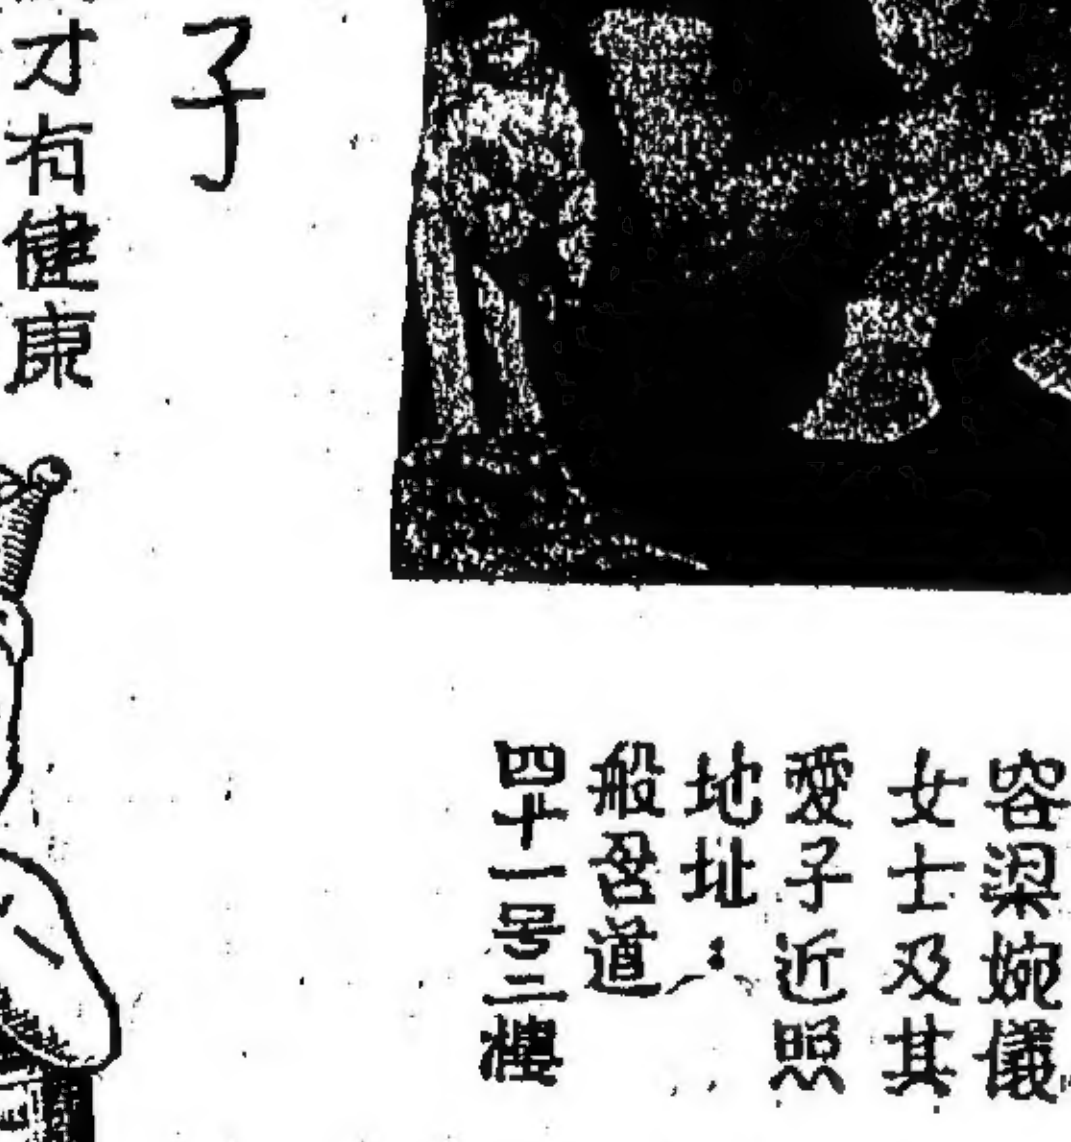 容梁婉儀
女士及其
愛子近照
地址：
般含道
四十一号三樓
子
才有健康